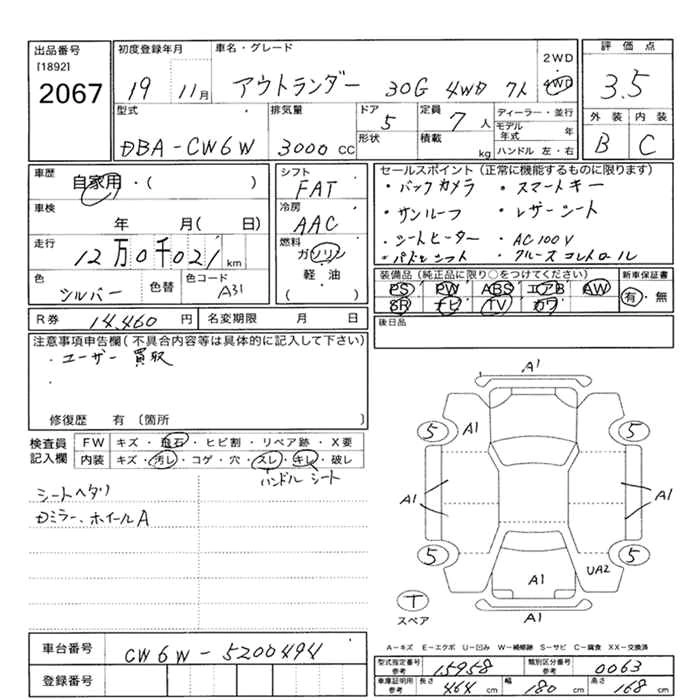 出品番号
[1892]
2067
初度登録年月
19 11月
車名・グレード
アウトランダー 30G 4WD 7人
2WD
4WD
評価点
3.5
外装 内装
B C
型式
DBA-CW6W
排気量
3000 CC
ドア
5
形状
定員
7 人
積載
kg
ディーラー・並行
モデル年式 年
ハンドル 左・右
車歴
自家用・( )
車検
年 月( 日)
走行
12万0千021 km
色
シルバー
色替
色コード
A31
シフト
FAT
冷房
AAC
燃料
ガソリン
軽・油
( )
セールスポイント(正常に機能するものに限ります)
・バックカメラ ・スマートキー
・サンルーフ ・レザーシート
・シートヒーター ・AC100V
・パドルシフト ・クルーズコントロール
装備品(純正品に限り○をつけてください)
PS PW ABS エアB AW
SR ナビ TV カワ
新車保証書
有・無
R券 14,460 円 名変期限 月 日
後日品
注意事項申告欄(不具合内容等は具体的に記入して下さい)
・ユーザー買取
・
修復歴 有 [箇所 ]
検査員
記入欄
FW キズ・飛石・ヒビ割・リペア跡・X要
内装 キズ・汚レ・コゲ・穴・スレ・キレ・破レ
ハンドル シート
シートヘタリ
Dミラー、ホイールA
A1
5 A1 5
A1 A1
5 5
UA2
A1
T
スペア
A1
A-キズ E-エクボ U-凹み W-補修跡 S-サビ C-腐食 XX-交換済
車台番号 CW6W-5200494
登録番号
型式指定番号 参考 15958 類別区分番号 参考 0063
車庫証明用 参考 長さ 464 cm 幅 180 cm 高さ 168 cm